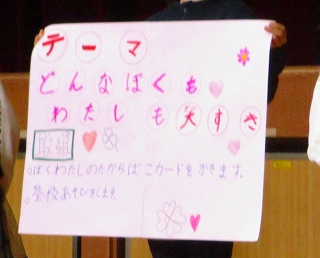 テーマ
どんなぼくも
わたしも大すき
取組
○ぼくわたしのたからばこカードをかきます。
○登校あそびをします。